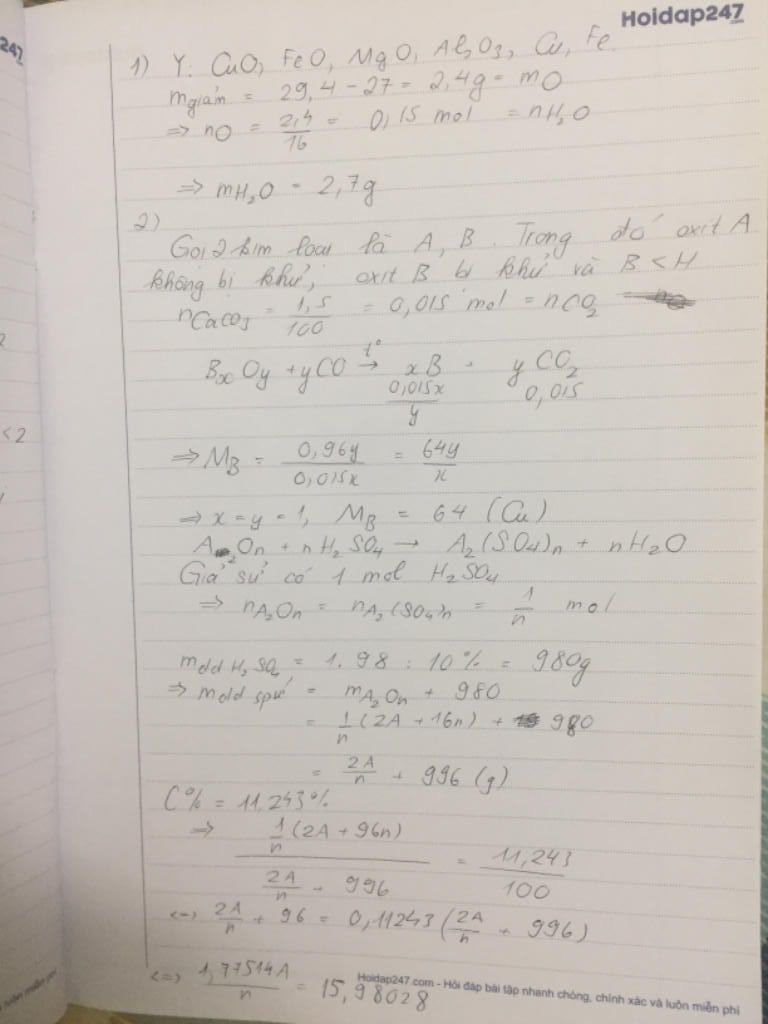 Hoidap247
247
1) Y: CuO, FeO, MgO, Al2O3, Cu, Fe
mgiảm = 29,4 - 27 = 2,4g = mO
=> nO = 2,4/16 = 0,15 mol = nH2O
=> mH2O = 2,7g
2)
Gọi 2 kim loại là A, B. Trong đó oxit A
không bị khử, oxit B bị khử và B < H
nCaCO3 = 1,5/100 = 0,015 mol = nCO2
BxOy + yCO t°→ xB + yCO2
0,015x/y 0,015
=> MB = 0,96y/0,015x = 64y/x
< 2
=> x = y = 1, MB = 64 (Cu)
A2On + nH2SO4 → A2(SO4)n + nH2O
Giả sử có 1 mol H2SO4
=> nA2On = nA2(SO4)n = 1/n mol
mdd H2SO4 = 1.98 : 10% = 980g
=> mdd spứ = mA2On + 980
= 1/n (2A + 16n) + 980
= 2A/n + 996 (g)
C% = 11,243%
=> 1/n (2A + 96n) / (2A/n + 996) = 11,243/100
<=> 2A/n + 96 = 0,11243 (2A/n + 996)
<=> 1,77514A/n = 15,98028
Hoidap247.com - Hỏi đáp bài tập nhanh chóng, chính xác và luôn miễn phí
à luôn miễn phí